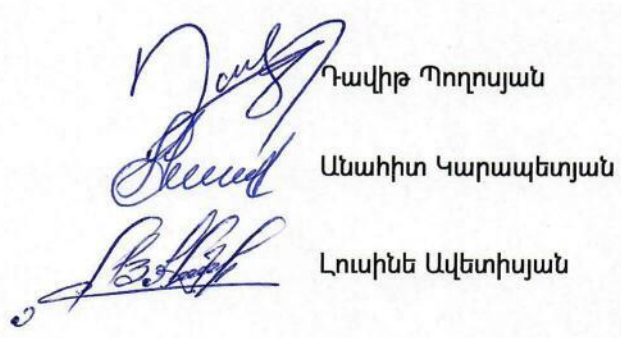 Դավիթ Պողոսյան
Անահիտ Կարապետյան
Լուսինե Ավետիսյան